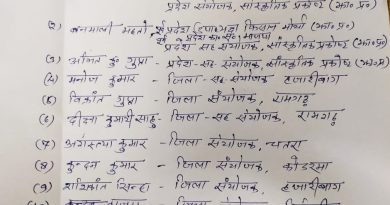 प्रदेश संयोजक, सांस्कृतिक प्रकोष्ठ (झा॰प्र॰)
(2) वनमाली महतो, पूर्व प्रदेश किसान मोर्चा (झा॰प्र॰)
प्रदेश सह संयोजक, सांस्कृतिक प्रकोष्ठ (झा॰प्र॰)
(3) अजित कु॰ गुप्ता - प्रदेश-सह संयोजक, सांस्कृतिक प्रकोष्ठ (झा॰प्र॰)
(4) मनोज कुमार - जिला-सह संयोजक, हजारीबाग
(5) विक्रांत गुप्ता - जिला संयोजक, रामगढ़
(6) कुमारी साहु - जिला-सह संयोजक, रामगढ़
(7) कुमार - जिला संयोजक, चतरा
(8) कुन्दन कुमार - जिला संयोजक, कोडरमा
(9) शशिकांत सिन्हा - जिला संयोजक, हजारीबाग